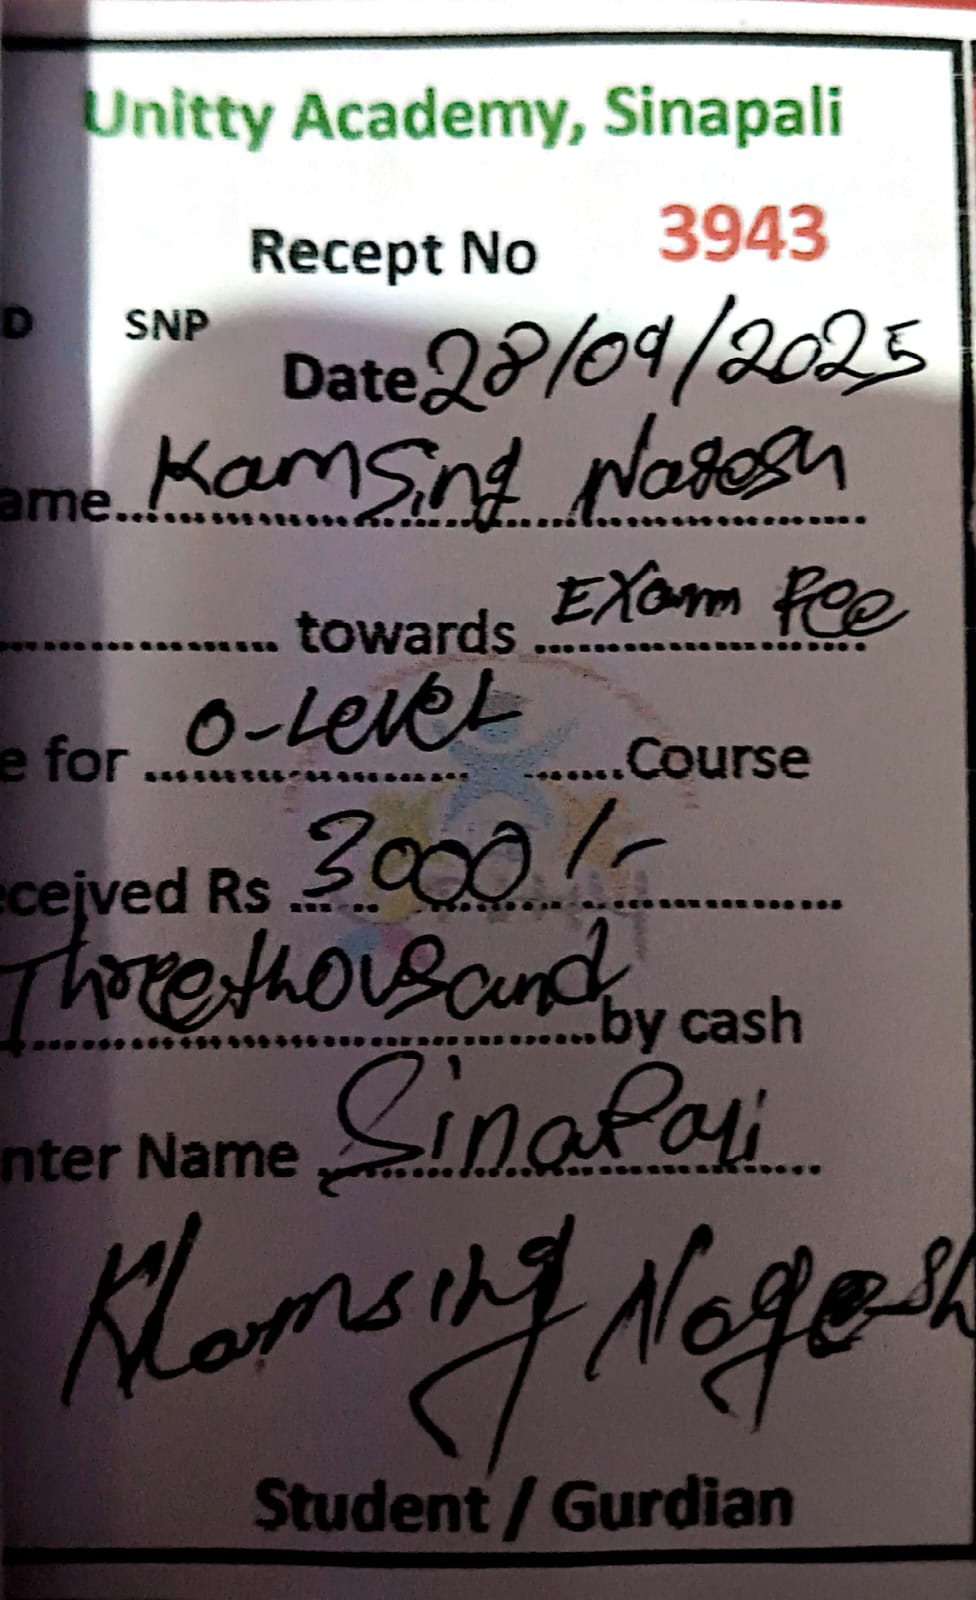 Unitty Academy, Sinapali
Recept No 3943
D SNP
Date 28/09/2025
ame Kamsing Nagesh
towards Exam Fee
e for O-Level Course
ceived Rs 3000/-
Three thousand by cash
nter Name Sinapali
Khamsing Nagesh
Student / Gurdian